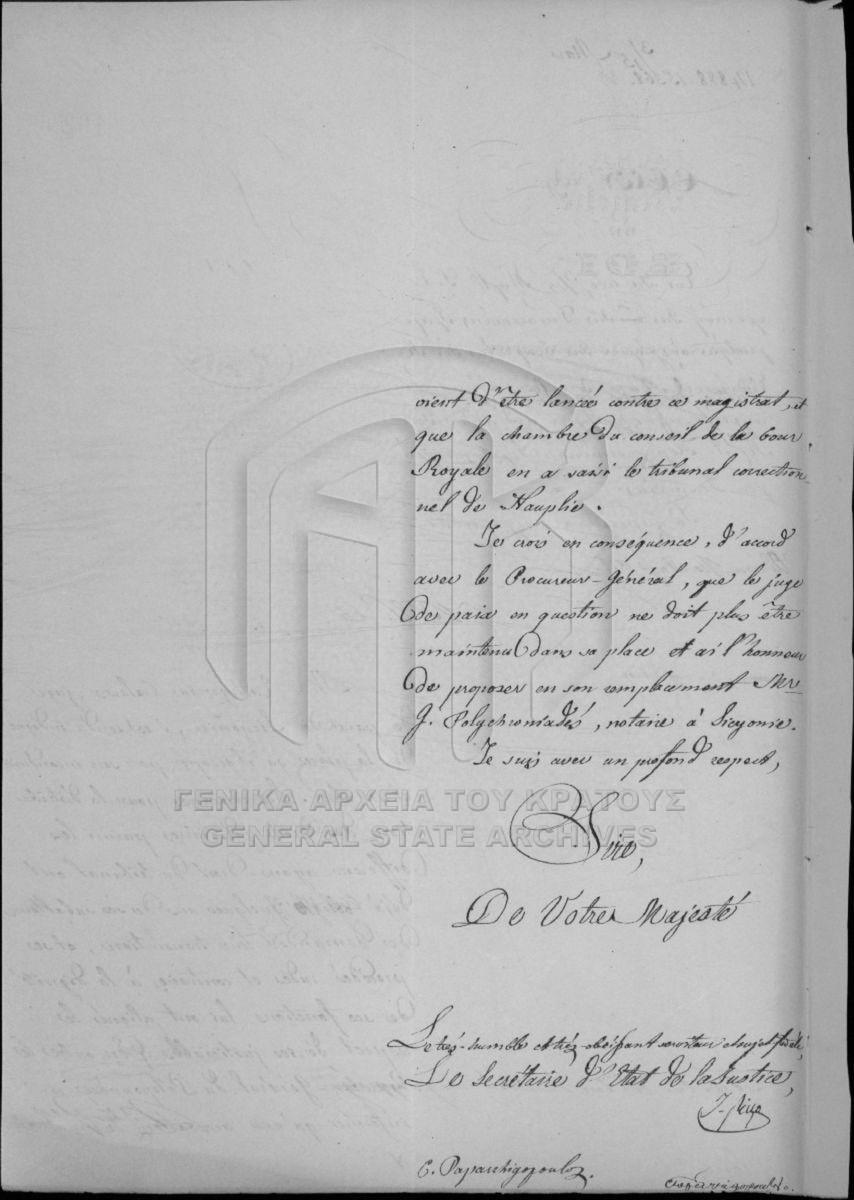 vient d'être lancée contre ce magistrat, et
que la chambre du conseil de la Cour
Royale en a saisi le tribunal correction-
nel de Nauplie.
Je crois en conséquence, d'accord
avec le Procureur-Général, que le juge
de paix en question ne doit plus être
maintenu dans sa place et ai l'honneur
de proposer en son remplacement Mr
J. Polychroniadés, notaire à Sicyonie.
Je suis avec un profond respect,
Sire,
De Votre Majesté
Le très-humble et très-obéissant serviteur et sujet fidèle,
Le Secrétaire d'Etat de la Justice,
C. Paparrhigopoulos.
ΓΕΝΙΚΑ ΑΡΧΕΙΑ ΤΟΥ ΚΡΑΤΟΥΣ
GENERAL STATE ARCHIVES